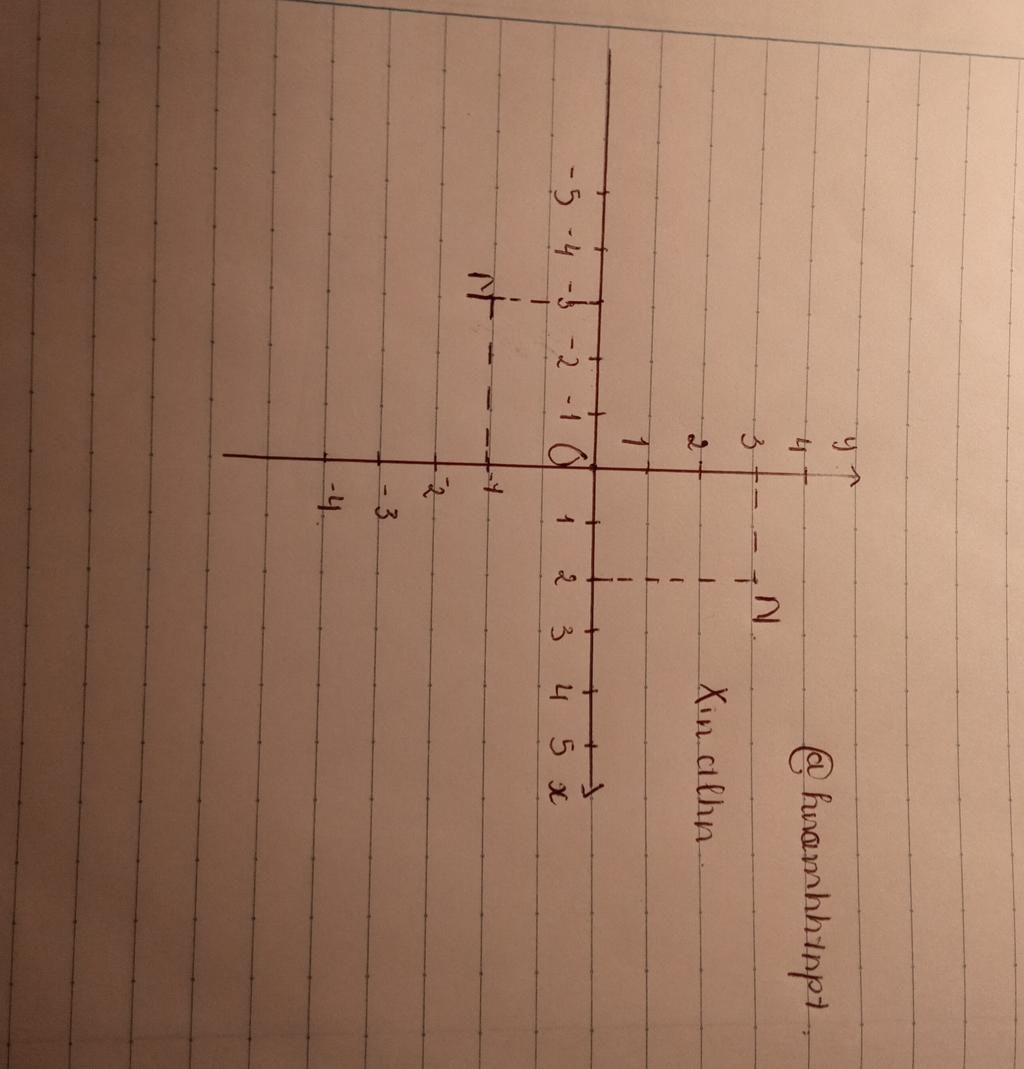 y
4 @hnamhhtnpt.
3 N
2 Xin ctlhn
1
-5 -4 -3 -2 -1 O 1 2 3 4 5 x
-1
-2
-3
-4